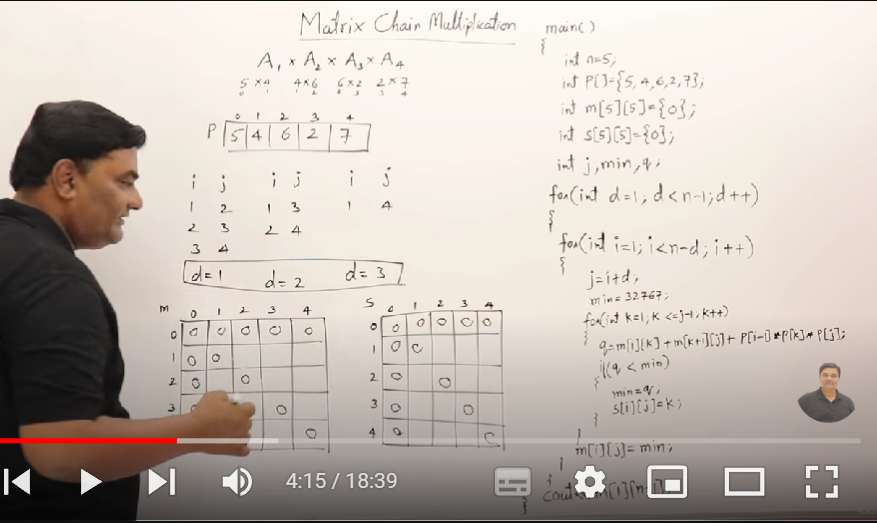 Matrix Chain Multiplication
A1 × A2 × A3 × A4
5 × 4 4 × 6 6 × 2 2 × 7
0 1 1 2 2 3 3 4
0 1 2 3 4
P 5 4 6 2 7
i j i j i j
1 2 1 3 1 4
2 3 2 4
3 4
d=1 d=2 d=3
m 0 1 2 3 4
0 0 0 0 0 0
1 0 0
2 0 0
3 0
0
S 0 1 2 3 4
0 0 0 0 0 0
1 0 0
2 0 0
3 0 0
4 0 0
main()
{
int n=5;
int P[]={5,4,6,2,7};
int m[5][5]={0};
int s[5][5]={0};
int j,min,q;
for(int d=1; d<n-1; d++)
{
for(int i=1; i<n-d; i++)
{
j=i+d;
min=32767;
for(int k=1; k<=j-1; k++)
{ q=m[i][k]+m[k+1][j]+P[i-1]*P[k]*P[j];
if(q < min)
{
min=q;
s[i][j]=k;
}
}
m[i][j]=min;
}
}
}
4:15 / 18:39